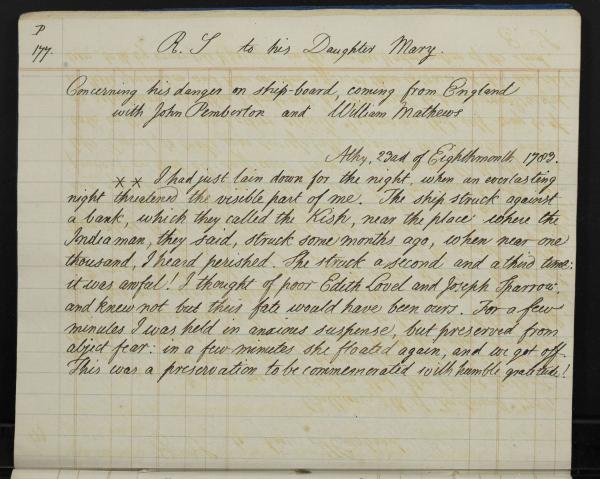 P
177.
R. S to his Daughter Mary.
Concerning his danger on ship-board, coming from England
with John Pemberton and William Mathews
Athy, 23ad of Eighthmonth 1789.
× × I had just lain down for the night, when an everlasting
night threatened the visible part of me. The ship struck against
a bank, which they called the Kish, near the place where the
Indiaman, they said, struck some months ago, when near one
thousand, I heard perished. She struck a second and a third time:
it was awful. I thought of poor Edith Lovel and Joseph Sparrow,
and knew not but their fate would have been ours. For a few
minutes I was held in anxious suspense, but preserved from
abject fear: in a few minutes she floated again, and we got off.
This was a preservation to be commemorated with humble gratitude!